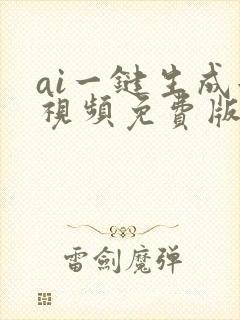 ai一鍵生成
視頻免費版
雷劍魔弹